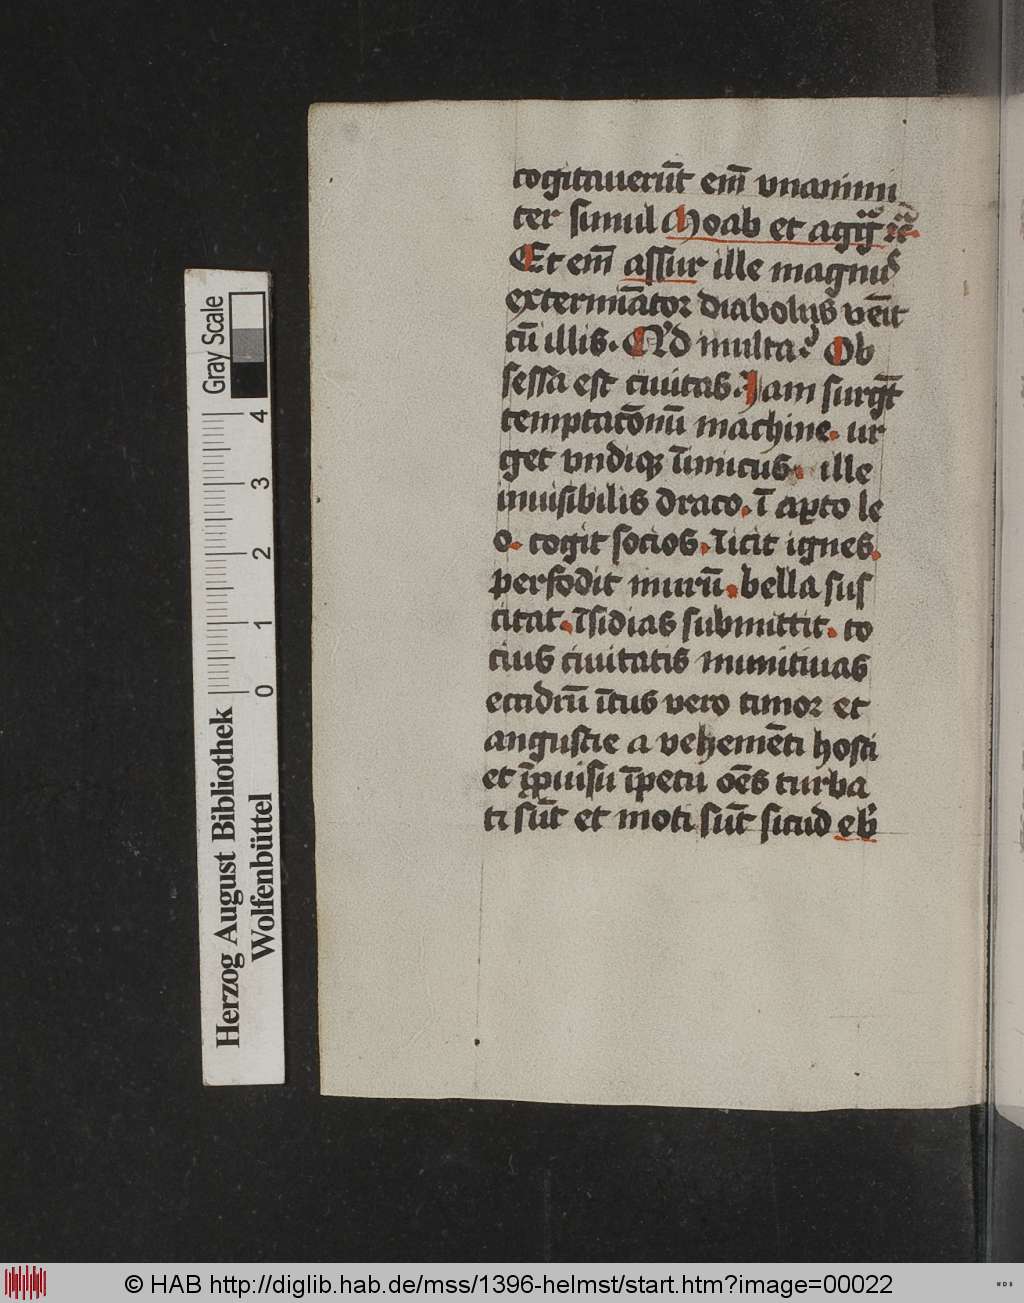 cogitauerūt em̄ vnanimi
ter simul Moab et
Et em̄ assur ille magnus
extermīator diabolus vēit
cū illis. Qͥd multa? Ob
sessa est ciuitas. Jam surgūt
temptacōnū machine. ur
get vndiqꝫ īimicus. ille
inuisibilis draco. ī aꝑto le
o. cogit socios. īicit ignes.
perfodit murū. bella sus
citat. īsidias submittit. to
cius ciuitatis munitiuas
eccidrū ītus vero timor et
angustie a vehemēti hosti
et īꝓuisu īpetu oēs turba
ti sūt et moti sūt sicud eb
Gray Scale
4
3
2
1
0
Herzog August Bibliothek
Wolfenbüttel
© HAB http://diglib.hab.de/mss/1396-helmst/start.htm?image=00022
WDB